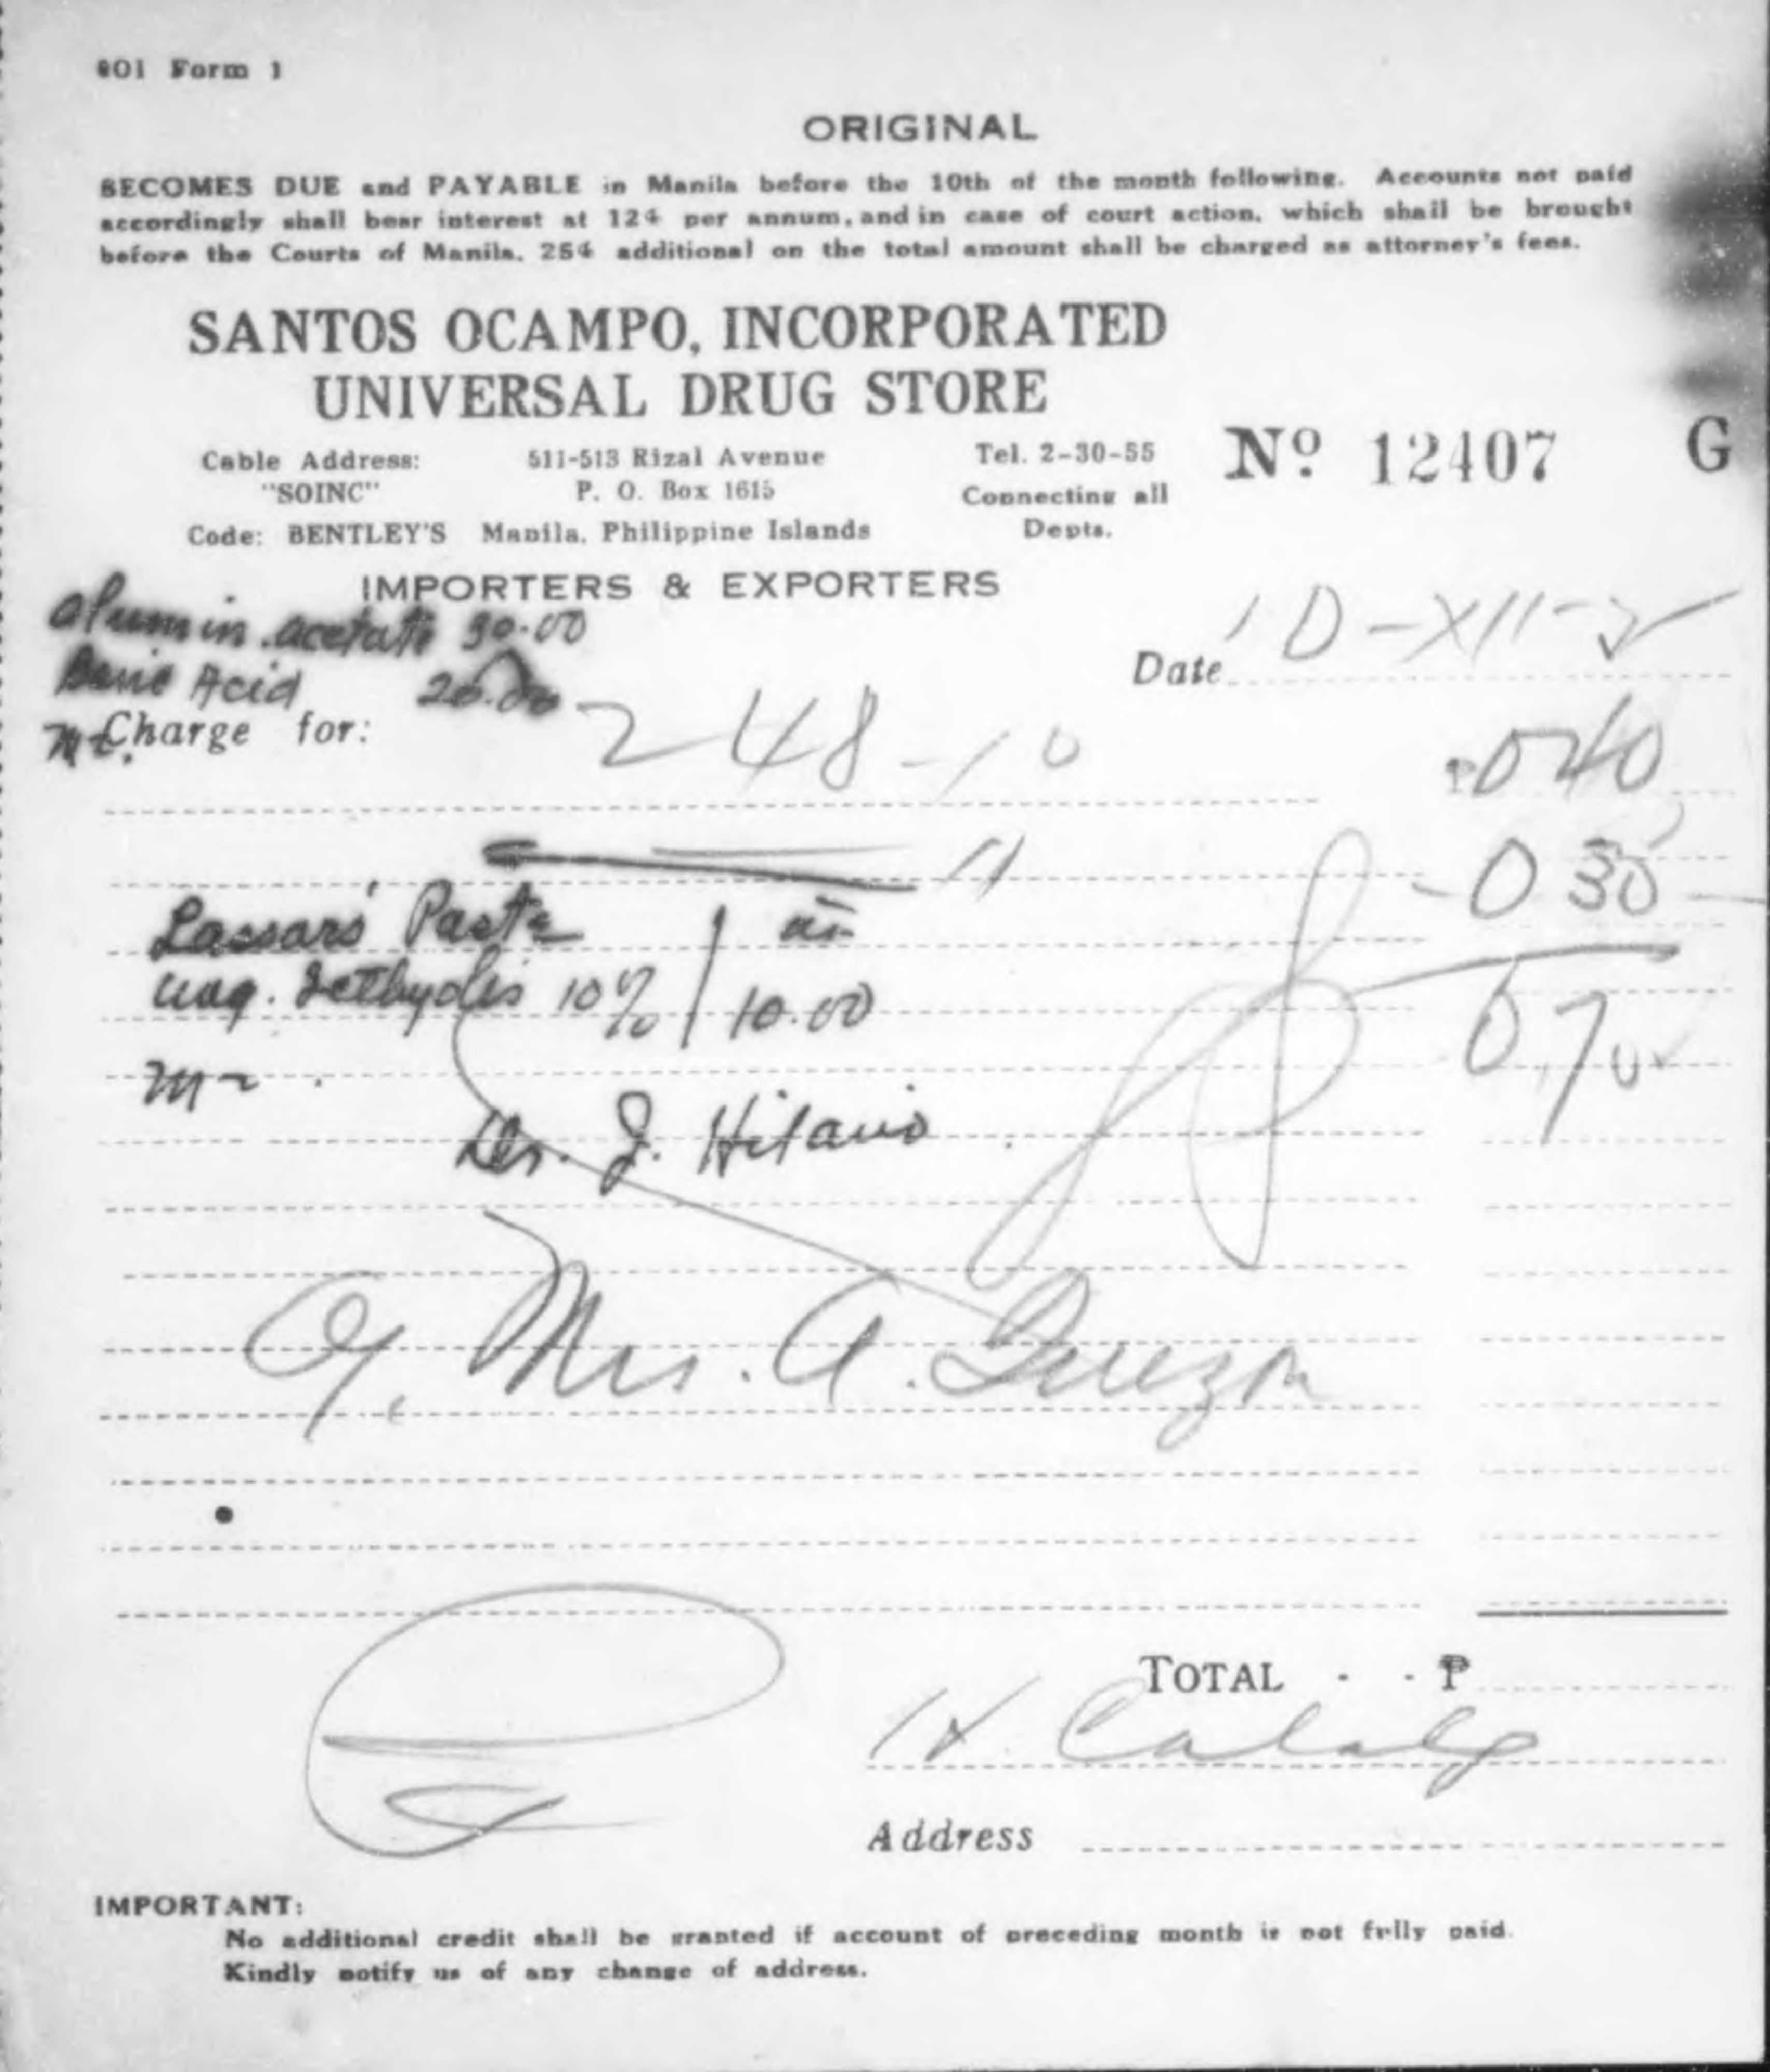 801 Form 1
ORIGINAL
BECOMES DUE and PAYABLE in Manila before the 10th of the month following. Accounts not paid
accordingly shall bear interest at 12% per annum, and in case of court action, which shall be brought
before the Courts of Manila, 25% additional on the total amount shall be charged as attorney's fees.
SANTOS OCAMPO, INCORPORATED
UNIVERSAL DRUG STORE
Cable Address: 511-513 Rizal Avenue Tel. 2-30-55
"SOINC" P. O. Box 1615 Connecting all
Code: BENTLEY'S Manila, Philippine Islands Depts.
Nº 12407 G
IMPORTERS & EXPORTERS
Alumin. acetate 30.00
Date 10-XII-
Acid 20.00
Charge for: 248-10 ₱ 040
11 0 30
Lassar's Paste aa
ung. 10% 10.00 0.70
M
Dr. J. Hilario
Mrs. A. Quezon
TOTAL - - ₱
Address
IMPORTANT:
No additional credit shall be granted if account of preceding month is not fully paid.
Kindly notify us of any change of address.